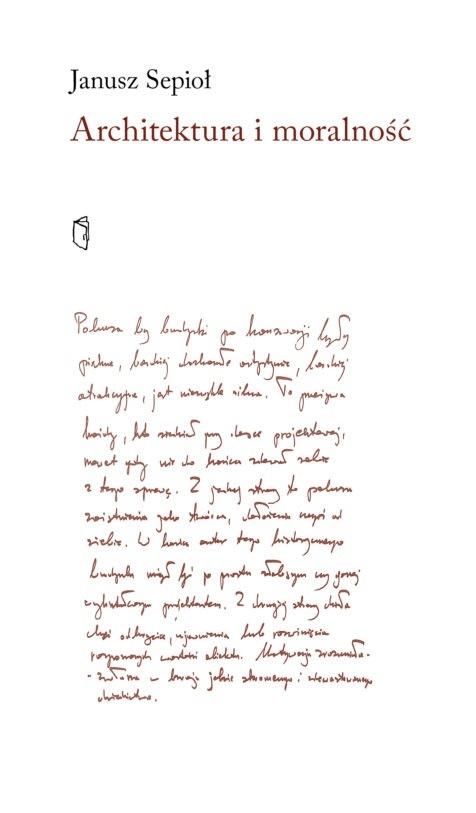 Janusz Sepioł
Architektura i moralność
Pokusa by budynki po konserwacji były
piękne, bardziej doskonałe artystycznie, bardziej
atrakcyjne, jest niezwykle silna. To przeżywa
każdy, kto siedział przy desce projektowej,
nawet gdy nie do końca zdawał sobie
z tego sprawę. Z jednej strony to pokusa
zaistnienia jako twórca, dołożenia czegoś od
siebie. W końcu autor tego historycznego
budynku mógł być po prostu słabszym czy gorzej
wykształconym projektantem. Z drugiej strony działa
chęć odkrycia, ujawnienia lub rozwinięcia
wartości obiektu. Motywacja zrozumiała